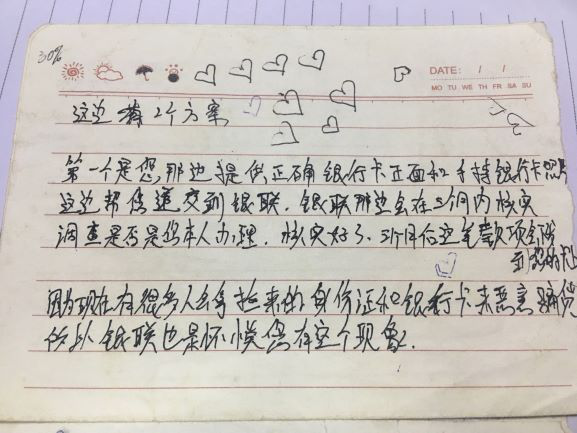 30%
DATE: / /
MO TU WE TH FR SA SU
这边有2个方案
第一个是您那边提供正确银行卡正面和手持银行卡照片
这边帮您递交到银联,银联那边会在三个月内核实
调查是否是您本人办理,核实好了、三个月后这笔款项会
到您的卡上
因为现在有很多人会拿捡来的身份证和银行卡来恶意骗贷
的所以银联也是怀疑您有这个现象.